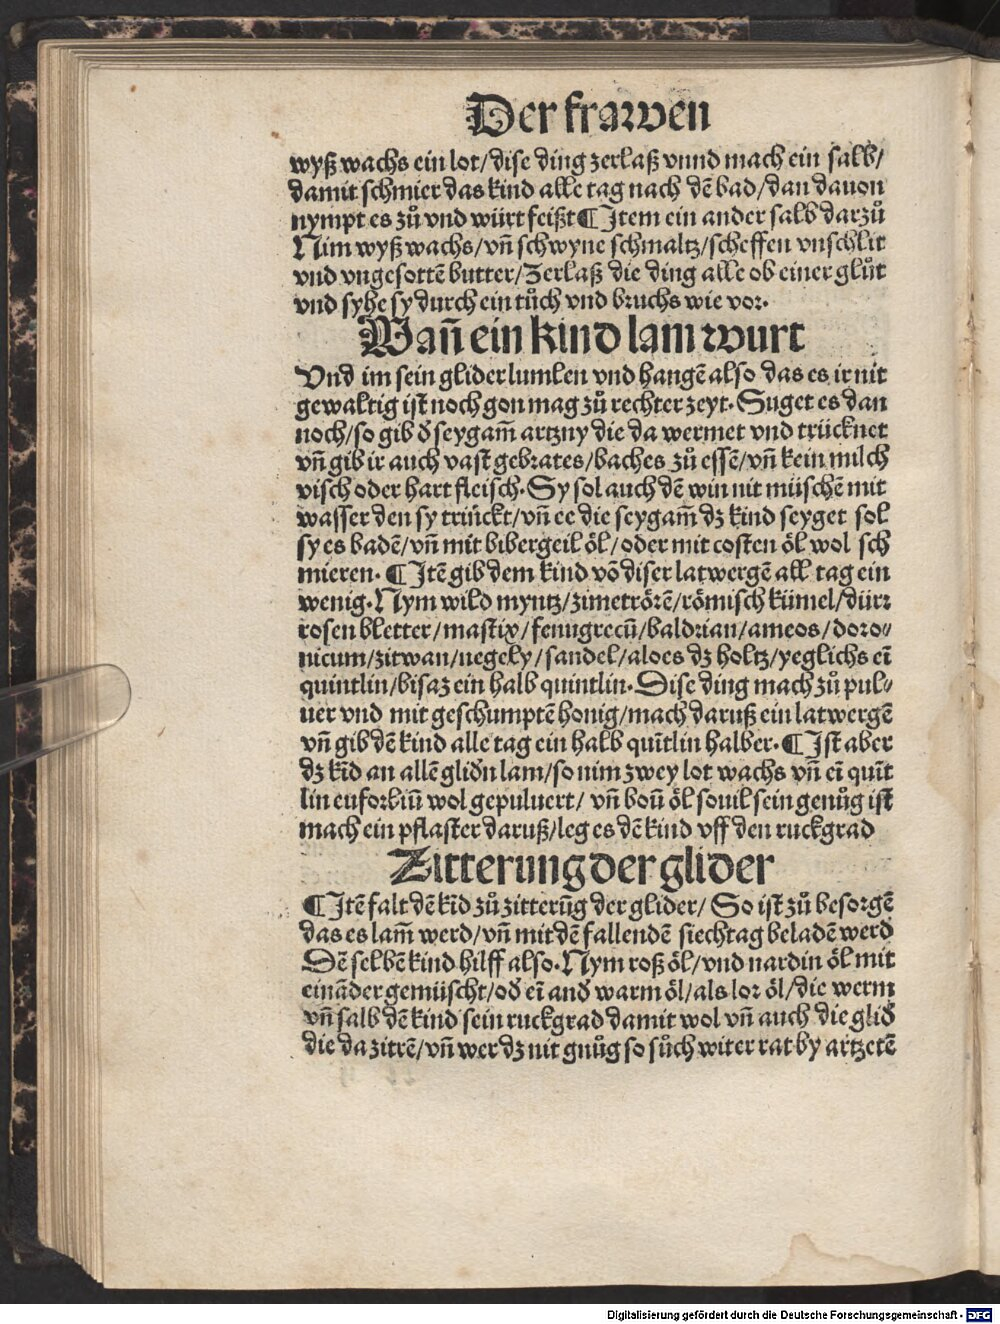 Der frawen
wyß wachs ein lot/dise ding zerlaß vnnd mach ein salb/
damit schmier das kind alle tag nach dē bad/dan dauon
nympt es zů vnd würt feißt ¶ Item ein ander salb darzů
Nim wyß wachs/vñ schwyne schmaltz/scheffen vnschlit
vnd vngesottē butter/Zerlaß die ding alle ob einer glůt
vnd syhe sy durch ein tůch vnd bruchs wie vor.
Wañ ein kind lam wurt
Vnd im sein glider lumlen vnd hangē also das es ir nit
gewaltig ist noch gon mag zů rechter zeyt. Suget es dan
noch/so gib d̕ seygam̄ artzny die da wermet vnd trücknet
vñ gib ir auch vast gebrates/baches zů essē/vñ kein milch
visch oder hart fleisch. Sy sol auch dē win nit müschē mit
wasser den sy trinckt/vñ ee die seygam̄ dz kind seyget sol
sy es badē/vñ mit bibergeil öl/oder mit costen öl wol sch
mieren. ¶ Itē gib dem kind vō diser latwergē all tag ein
wenig. Nym wild myntz/zimetrörē/römisch kümel/dürr
rosen bletter/mastix/fenugrecū/baldrian/ameos/doro⸗
nicum/zitwan/negely/sandel/aloes dz holtz/yeglichs eī
quintlin/bisaz ein halb quintlin. Dise ding mach zů pul⸗
uer vnd mit geschumptē honig/mach daruß ein latwergē
vñ gib dē kind alle tag ein halb quītlin halber. ¶ Ist aber
dz kīd an allē glid̕n lam/so nim zwey lot wachs vñ eī quīt
lin euforbiū wol gepuluert/ vñ boū öl souil sein genůg ist
mach ein pflaster daruß/leg es dē kind vff den ruckgrad
Zitterung der glider
¶ Itē falt dē kīd zů zitterūg der glider/ So ist zů besorgē
das es lam̄ werd/vñ mit dē fallendē siechtag beladē werd
Dē selbē kind hilff also. Nym roß öl/vnd nardin öl mit
eināder gemüscht/od̕ eī and̕ warm öl/als lor öl/die werm
vñ salb dē kind sein ruckgrad damit wol vñ auch die glid̕
die da zitrē/vñ wer dz nit gnůg so sůch witer rat by artzetē
Digitalisierung gefördert durch die Deutsche Forschungsgemeinschaft - DFG